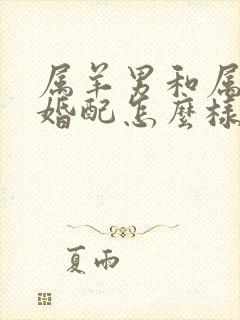 属羊男和属
婚配怎麼樣
夏雨